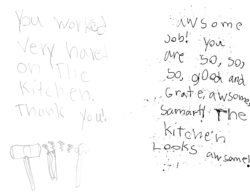 You worked
Very hard
on The
Kitchen.
Thank you!
awsome
Job! you
are so, so,
so, good and
Grate, awsome,
Samart! The
Kitchen
Looks awsome!